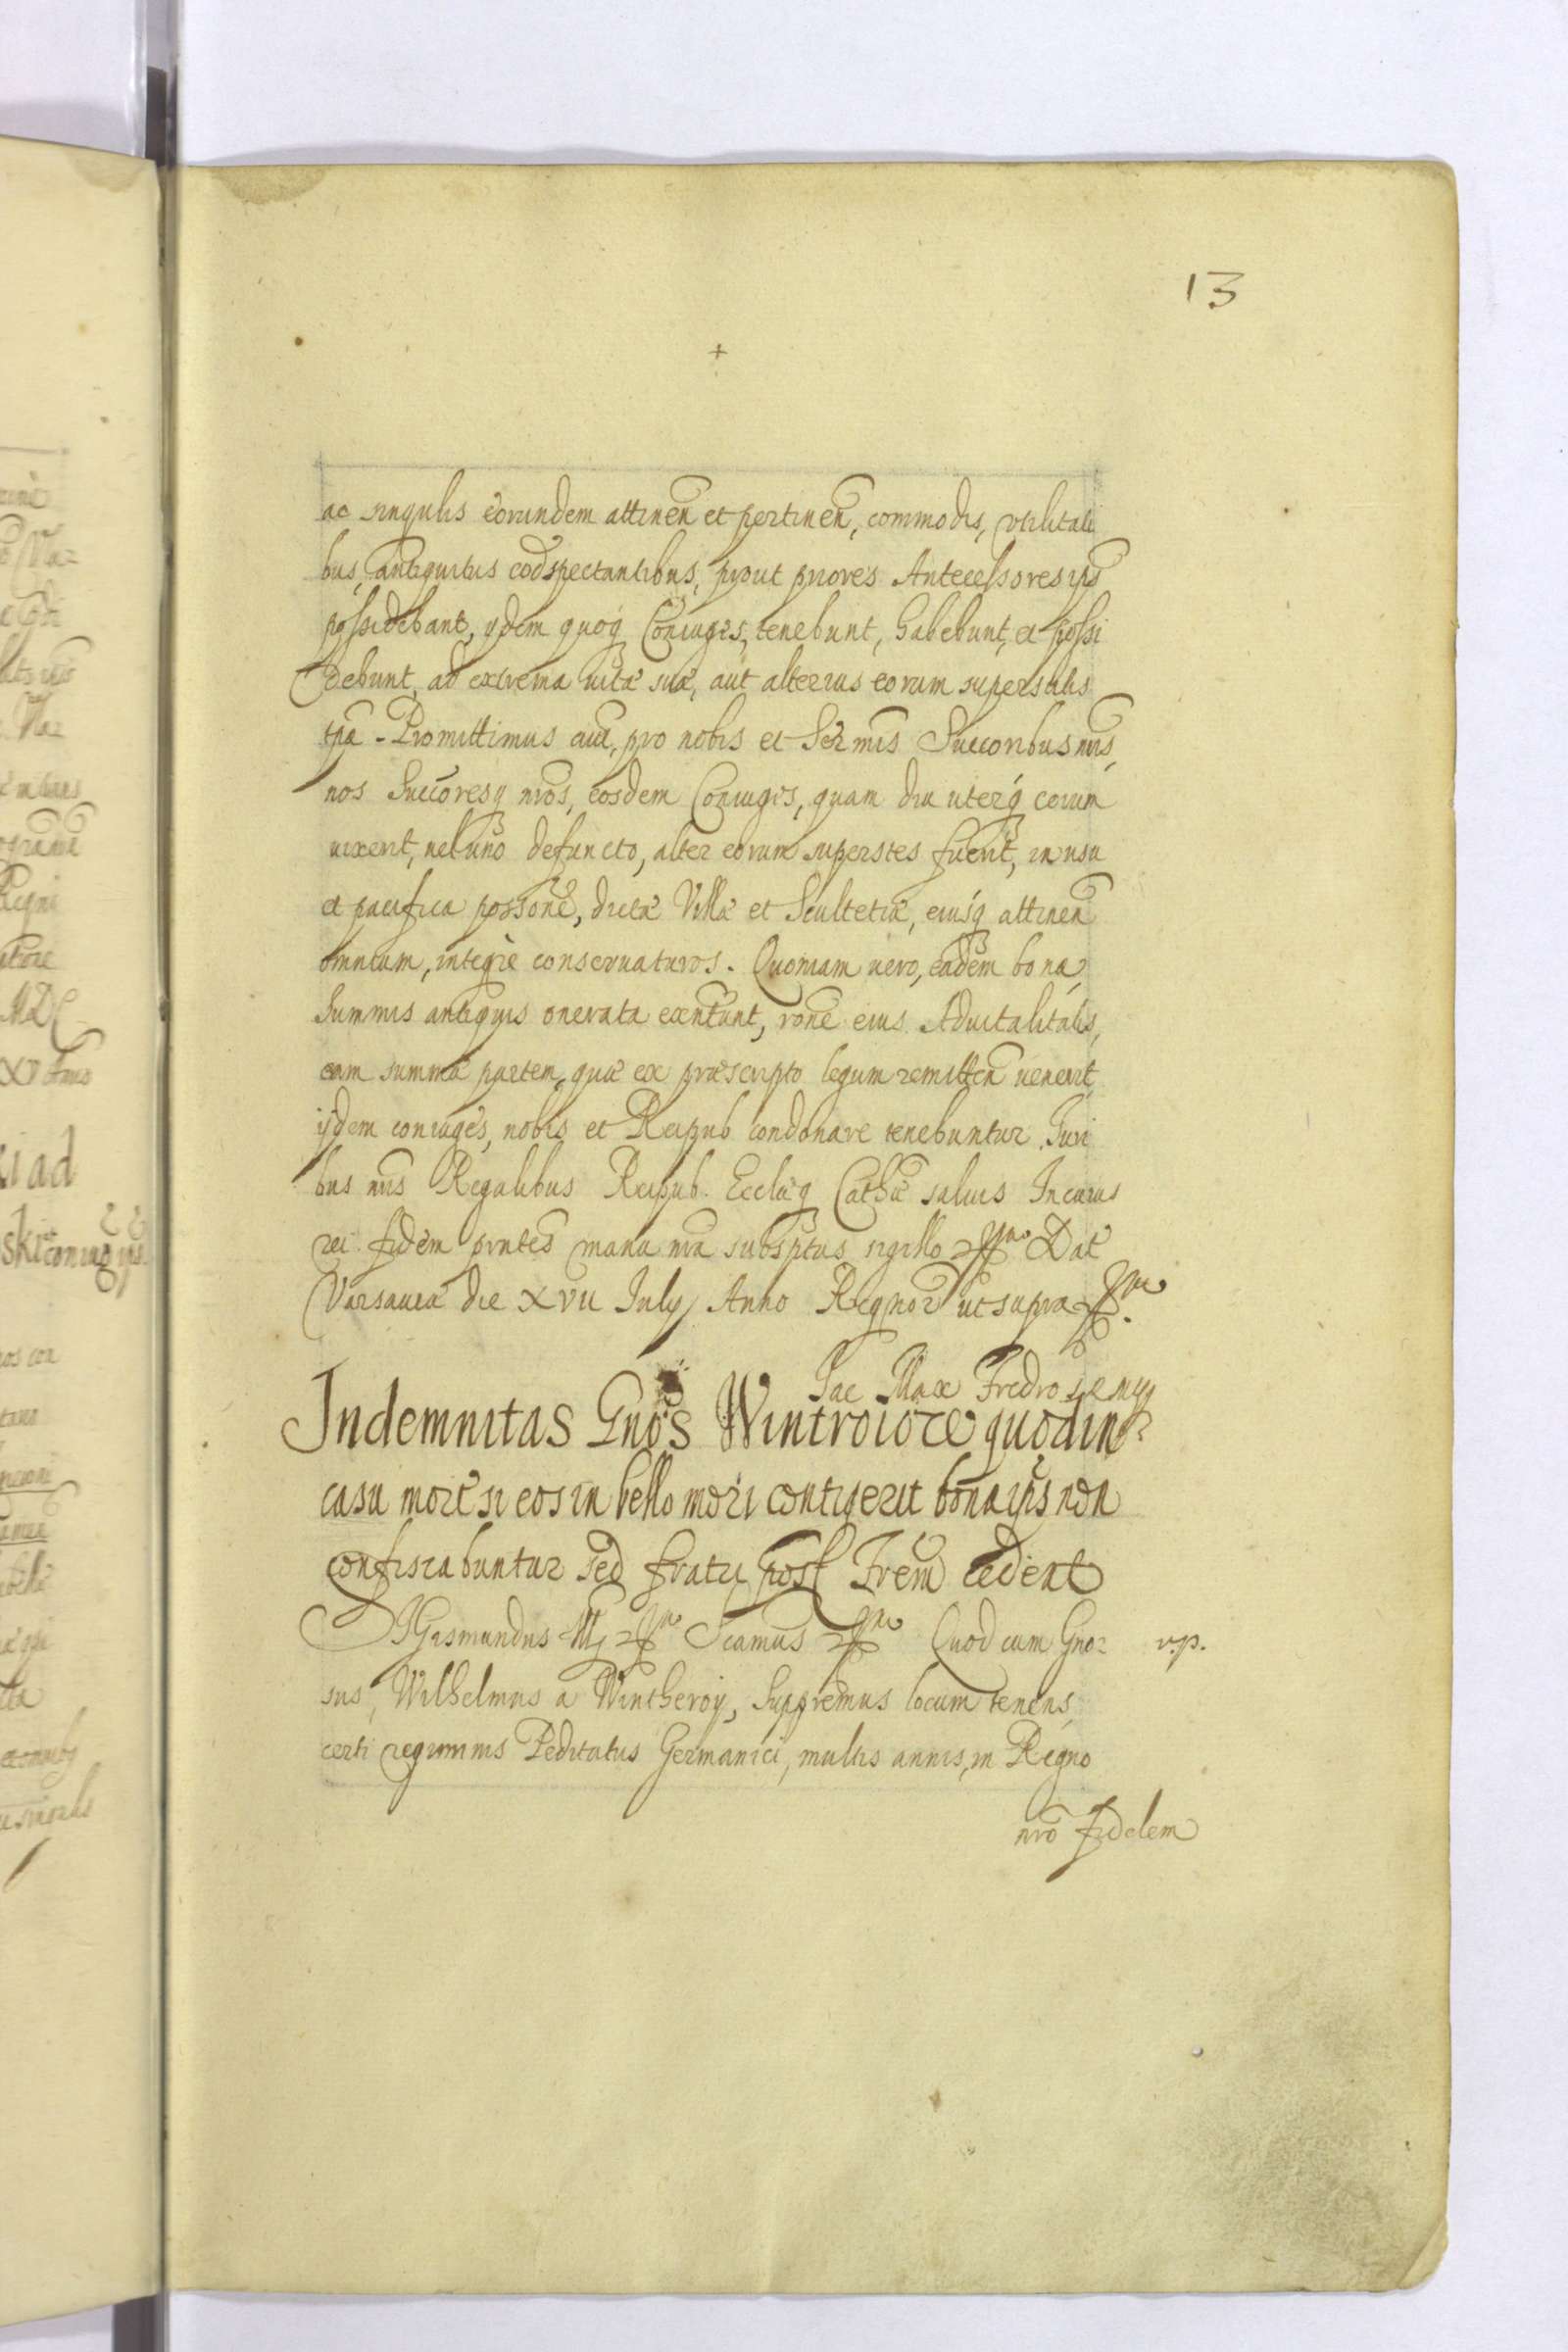 13
+
ac singulis eorundem attinen et pertinen, commodis, vtilitati
bus, antiquitus eo spectantibus, prout priores Antecessores ipsi
possidebant, ydem quoq Coniuges, tenebunt, habebunt, et possi
debunt, ad extrema vitæ suæ, aut alterius eorum superstitis
tpa. Promittimus aut, pro nobis et Sermis Succoribus nris,
nos Succoresq nros, eosdem Coniuges, quam diu uterq eorum
uixerit, uel uno defuncto, alter eorum superstes fuerit, in usu
et pacifica possone, dictæ Villæ et Scultetiæ, eiusq attinen
omnium, integre conseruaturos. Quoniam uero, eadem bona,
Summis antiquis onerata existunt, rone eius Aduitalitatis,
eam summæ partem, quæ ex præscripto legum remitten uenerit
ijdem coniuges, nobis et Reipub condonare tenebuntur. Juri
bus nris Regalibus Reipub. Ecclæq Cathæ saluis In cuius
rei fidem pntes manu nra subsptas sigillo Dat
Varsauiæ die XVII July Anno Regnor ut supra
Jac Max Fredro
Indemnitas Gnos Wintroiore quod in
casu mort si eos in bello mori contigerit bona ips non
confiscabuntur sed fratri post Frem cedent
SIGismundus III Scamus Quod cum Gno-
r.p.
sus, Wilhelmus a Wintheroy, Suppremus locum tenens,
certi regiminis Peditatus Germanici, multis annis, in Regno
nro fidelem